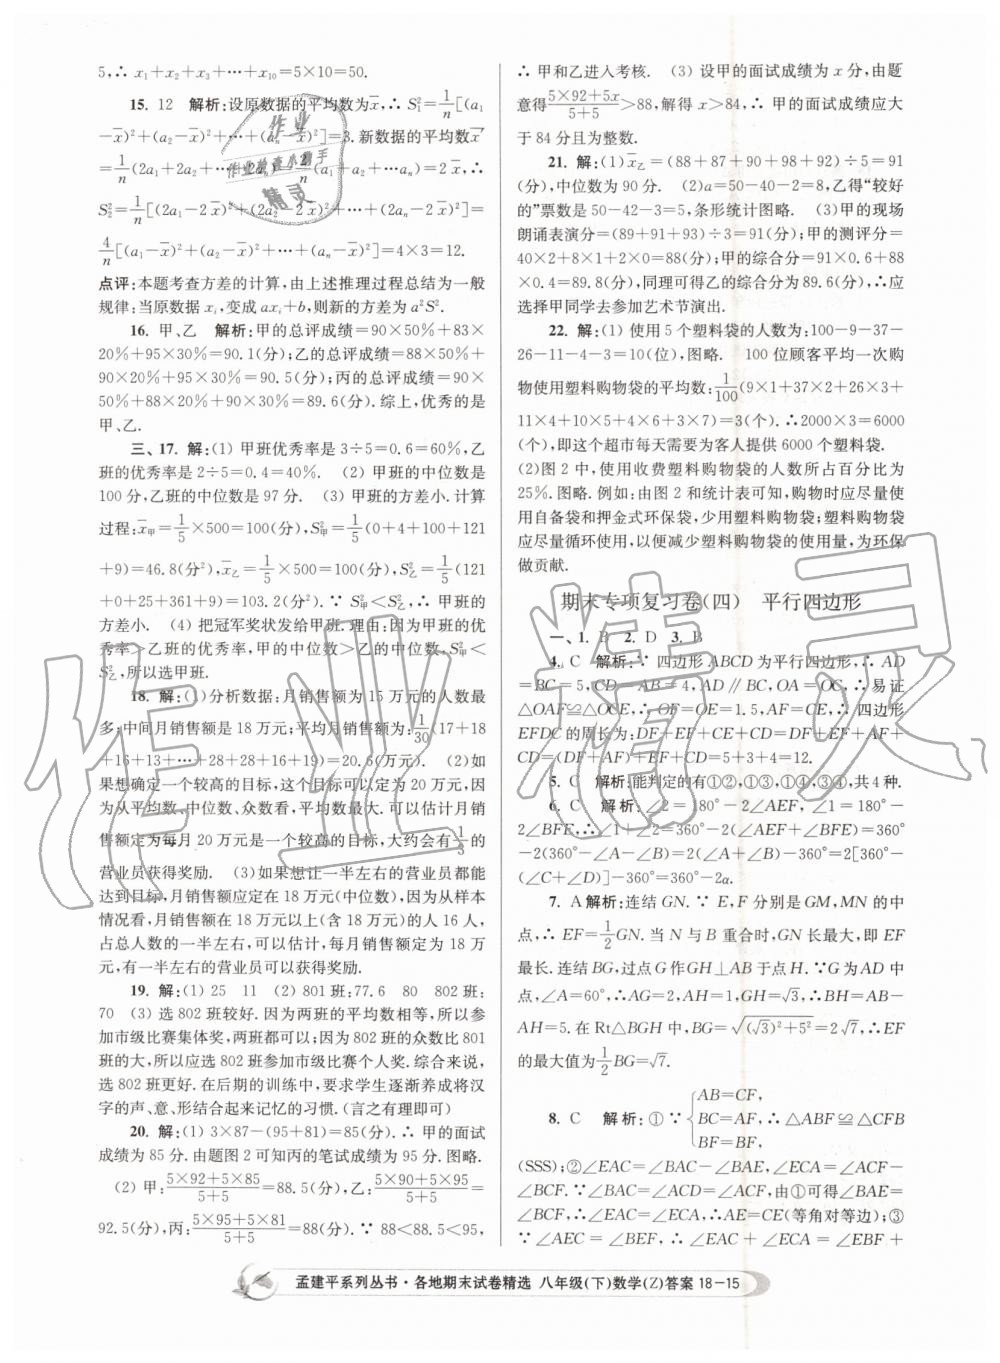 5,∴ x₁+x₂+x₃+…+x₁₀=5×10=50.
15. 12 解析:设原数据的平均数为x̄,∴ S₁²=1/n[(a₁
-x̄)²+(a₂-x̄)²+…+(aₙ-x̄)²]=3.新数据的平均数x̄′
=1/n(2a₁+2a₂+…+2aₙ)=2/n(a₁+a₂+…+aₙ)=2x̄,∴
S₂²=1/n[(2a₁-2x̄)²+(2a₂-2x̄)²+…+(2aₙ-2x̄)²]=
4/n[(a₁-x̄)²+(a₂-x̄)²+…+(aₙ-x̄)²]=4×3=12.
点评:本题考查方差的计算,由上述推理过程总结为一般
规律:当原数据xᵢ,变成axᵢ+b,则新的方差为a²S².
16. 甲、乙 解析:甲的总评成绩=90×50%+83×
20%+95×30%=90.1(分);乙的总评成绩=88×50%+
90×20%+95×30%=90.5(分);丙的总评成绩=90×
50%+88×20%+90×30%=89.6(分).综上,优秀的是
甲、乙.
三、17. 解:(1) 甲班优秀率是3÷5=0.6=60%,乙
班的优秀率是2÷5=0.4=40%. (2) 甲班的中位数是
100分,乙班的中位数是97分. (3) 甲班的方差小.计算
过程:x̄甲=1/5×500=100(分),S²甲=1/5(0+4+100+121
+9)=46.8(分²),x̄乙=1/5×500=100(分),S²乙=1/5(121
+0+25+361+9)=103.2(分²)∵ S²甲<S²乙,∴ 甲班的
方差小. (4) 把冠军奖状发给甲班.理由:因为甲班的优
秀率>乙班的优秀率,甲的中位数>乙的中位数,S²甲<
S²乙,所以选甲班.
18. 解:(1)分析数据:月销售额为15万元的人数最
多;中间月销售额是18万元;平均月销售额为:1/30(17+18
+16+13+…+28+28+16+19)=20.6(万元). (2)如
果想确定一个较高的目标,这个目标可以定为20万元,因
为从平均数、中位数、众数看,平均数最大.可以估计月销
售额定为每月20万元是一个较高的目标,大约会有1/3的
营业员获得奖励. (3)如果想让一半左右的营业员都能
达到目标,月销售额应定在18万元(中位数),因为从样本
情况看,月销售额在18万元以上(含18万元)的人16人,
占总人数的一半左右,可以估计,每月销售额为18万元,
有一半左右的营业员可以获得奖励.
19. 解:(1) 25 11 (2) 801班:77.6 80 802班:
70 (3) 选802班较好.因为两班的平均数相等,所以参
加市级比赛集体奖,两班都可以;因为802班的众数比801
班的大,所以应选802班参加市级比赛个人奖.综合来说,
选802班更好.在后期的训练中,要求学生逐渐养成将汉
字的声、意、形结合起来记忆的习惯.(言之有理即可)
20. 解:(1) 3×87-(95+81)=85(分).∴ 甲的面试
成绩为85分.由题图2可知丙的笔试成绩为95分.图略.
(2) 甲:(5×92+5×85)/(5+5)=88.5(分),乙:(5×90+5×95)/(5+5)=
92.5(分),丙:(5×95+5×81)/(5+5)=88(分).∵ 88<88.5<95,
∴ 甲和乙进入考核. (3) 设甲的面试成绩为x分,由题
意得(5×92+5x)/(5+5)>88,解得x>84,∴ 甲的面试成绩应大
于84分且为整数.
21. 解:(1) x̄乙=(88+87+90+98+92)÷5=91
(分),中位数为90分. (2)a=50-40-2=8,乙得“较好
的”票数是50-42-3=5,条形统计图略. (3)甲的现场
朗诵表演分=(89+91+93)÷3=91(分);甲的测评分=
40×2+8×1+2×0=88(分);甲的综合分=91×0.6+88
×0.4=89.8(分),同理可得乙的综合分为89.6(分),∴应
选择甲同学去参加艺术节演出.
22. 解:(1) 使用5个塑料袋的人数为:100-9-37-
26-11-4-3=10(人),图略. 100位顾客平均一次购
物使用塑料购物袋的平均数:1/100(9×1+37×2+26×3+
11×4+10×5+4×6+3×7)=3(个).∴2000×3=6000
(个),即这个超市每天需要为客人提供6000个塑料袋.
(2)图2中,使用收费塑料购物袋的人数所占百分比为
25%.图略.例如:由图2和统计表可知,购物时应尽量使
用自备袋和押金式环保袋,少用塑料购物袋;塑料购物袋
应尽量循环使用,以便减少塑料购物袋的使用量,为环保
做贡献.
期末专项复习卷(四) 平行四边形
一、1. B 2. D 3. B
4. C 解析:∵ 四边形ABCD为平行四边形,∴ AD
=BC=5,CD=AB=4,AD∥BC,OA=OC,∴易证
△OAF≌△OCE,∴ OF=OE=1.5,AF=CE,∴ 四边形
EFDC的周长为:DF+EF+CE+CD=DF+EF+AF+
CD=(DF+AF)+EF+CD=5+3+4=12.
5. C 解析:能判定的有①②,①③,①④,③④,共4种.
6. C 解析:∠2=180°-2∠AEF,∠1=180°-
2∠BFE,∴∠1+∠2=360°-2(∠AEF+∠BFE)=360°
-2(360°-∠A-∠B)=2(∠A+∠B)-360°=2[360°-
(∠C+∠D)]-360°=360°-2α.
7. A解析:连结GN.∵ E,F分别是GM,MN的中
点,∴ EF=1/2GN.当N与B重合时,GN长最大,即EF
最长.连结BG,过点G作GH⊥AB于点H.∵G为AD中
点,∠A=60°,∴AG=2,AH=1,GH=√3,∴BH=AB-
AH=5.在Rt△BGH中,BG=√((√3)²+5²)=2√7,∴EF
的最大值为1/2BG=√7.
8. C 解析:①∵{AB=CF, BC=AF, BF=BF, ∴△ABF≌△CFB
(SSS);②∠EAC=∠BAC-∠BAE,∠ECA=∠ACF-
∠BCF.∵∠BAC=∠ACD=∠ACF,由①可得∠BAE=
∠BCF,∴∠EAC=∠ECA,∴AE=CE(等角对等边);③
∵ ∠AEC = ∠BEF, ∠EAC + ∠ECA = ∠EBF +
孟建平系列丛书·各地期末试卷精选 八年级(下)数学(Z)答案 18-15
作业
作业检查小帮手
精灵
作业精灵